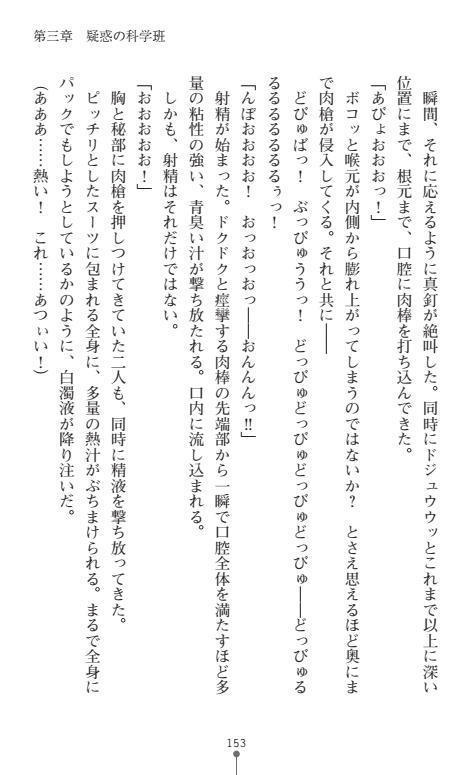 第三章　疑惑の科学班
瞬間、それに応えるように真釘が絶叫した。同時にドジュウウッとこれまで以上に深い
位置にまで、根元まで、口腔に肉棒を打ち込んできた。
「あぴょおおおっ！」
ボコッと喉元が内側から膨れ上がってしまうのではないか？　とさえ思えるほど奥にま
で肉槍が侵入してくる。それと共に――
どぴゅばっ！　ぶっぴゅううっ！　どっぴゅどっぴゅどっぴゅどっぴゅ――どっぴゅる
るるるるるるるぅっ！
「んぽぉおおおお！　おっおっおっ――おんんんっ!!」
射精が始まった。ドクドクと痙攣する肉棒の先端部から一瞬で口腔全体を満たすほど多
量の粘性の強い、青臭い汁が撃ち放たれる。口内に流し込まれる。
しかも、射精はそれだけではない。
「おおおおお！」
胸と秘部に肉槍を押しつけてきていた二人も、同時に精液を撃ち放ってきた。
ピッチリとしたスーツに包まれる全身に、多量の熱汁がぶちまけられる。まるで全身に
パックでもしようとしているかのように、白濁液が降り注いだ。
（あああ……熱い！　これ……あつぃい！）
153